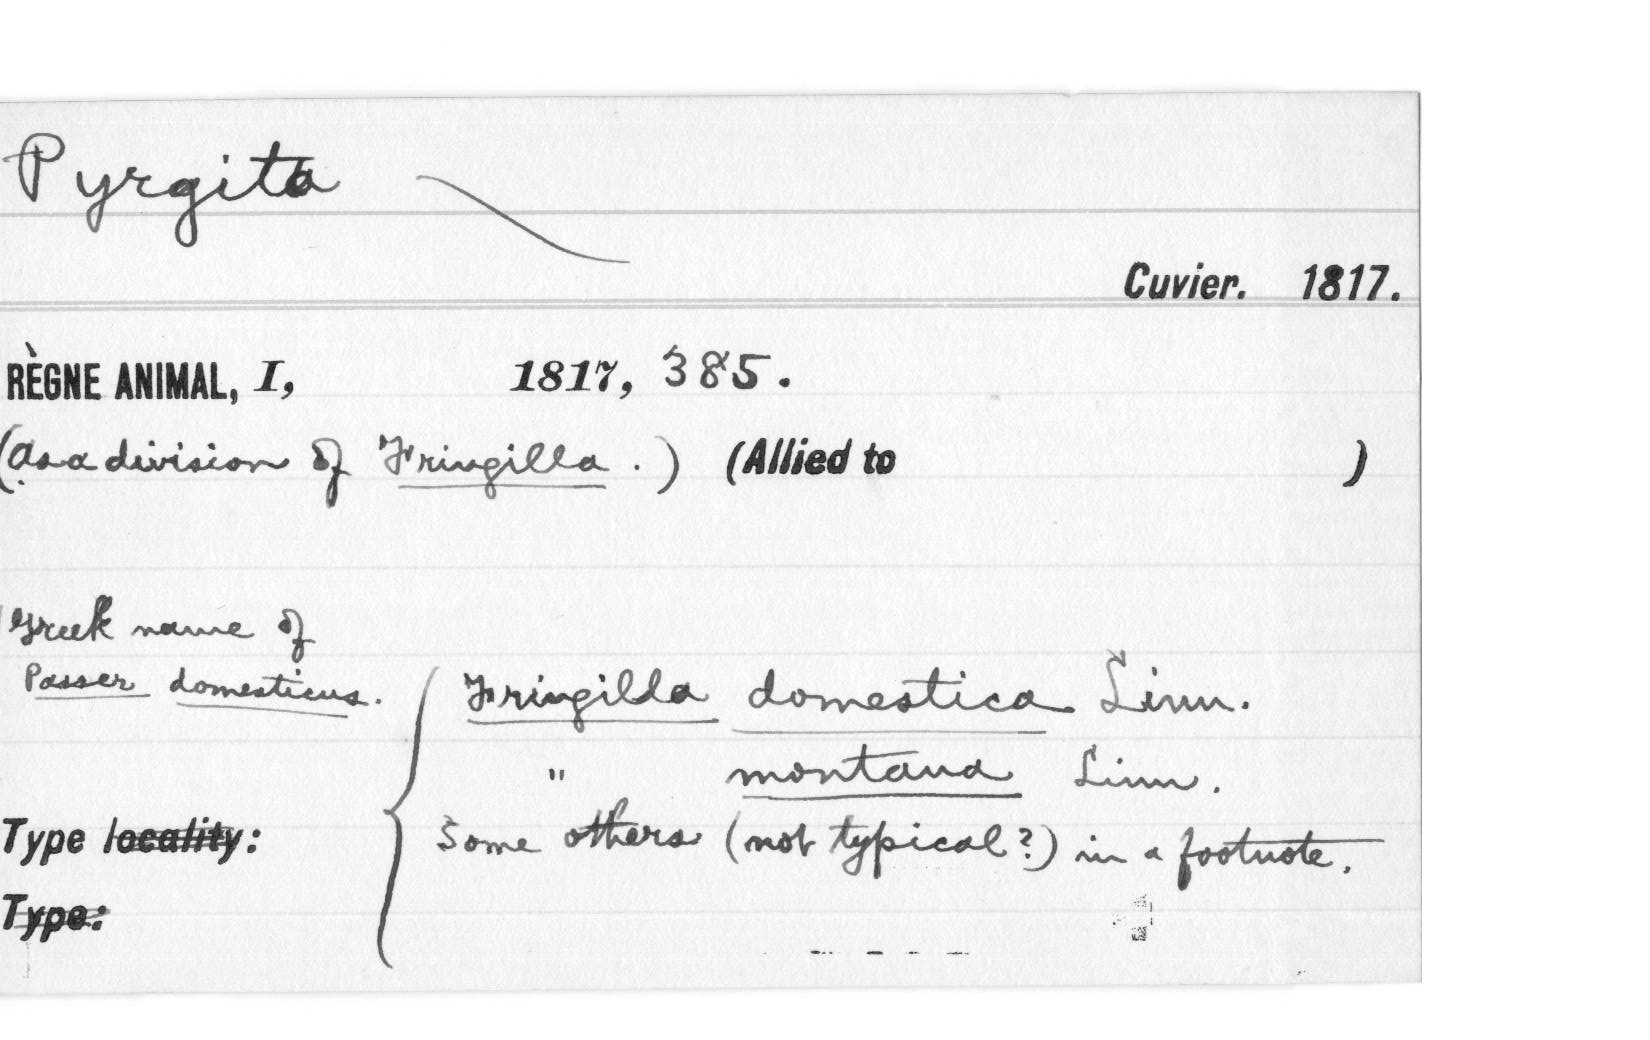 Pyrgita
Cuvier. 1817.
RÈGNE ANIMAL, I, 1817, 385.
(As a division of Fringilla.) (Allied to )
Greek name of
Passer domesticus.
Fringilla domestica Linn.
" montana Linn.
Type locality: Some others (not typical?) in a footnote.
Type: